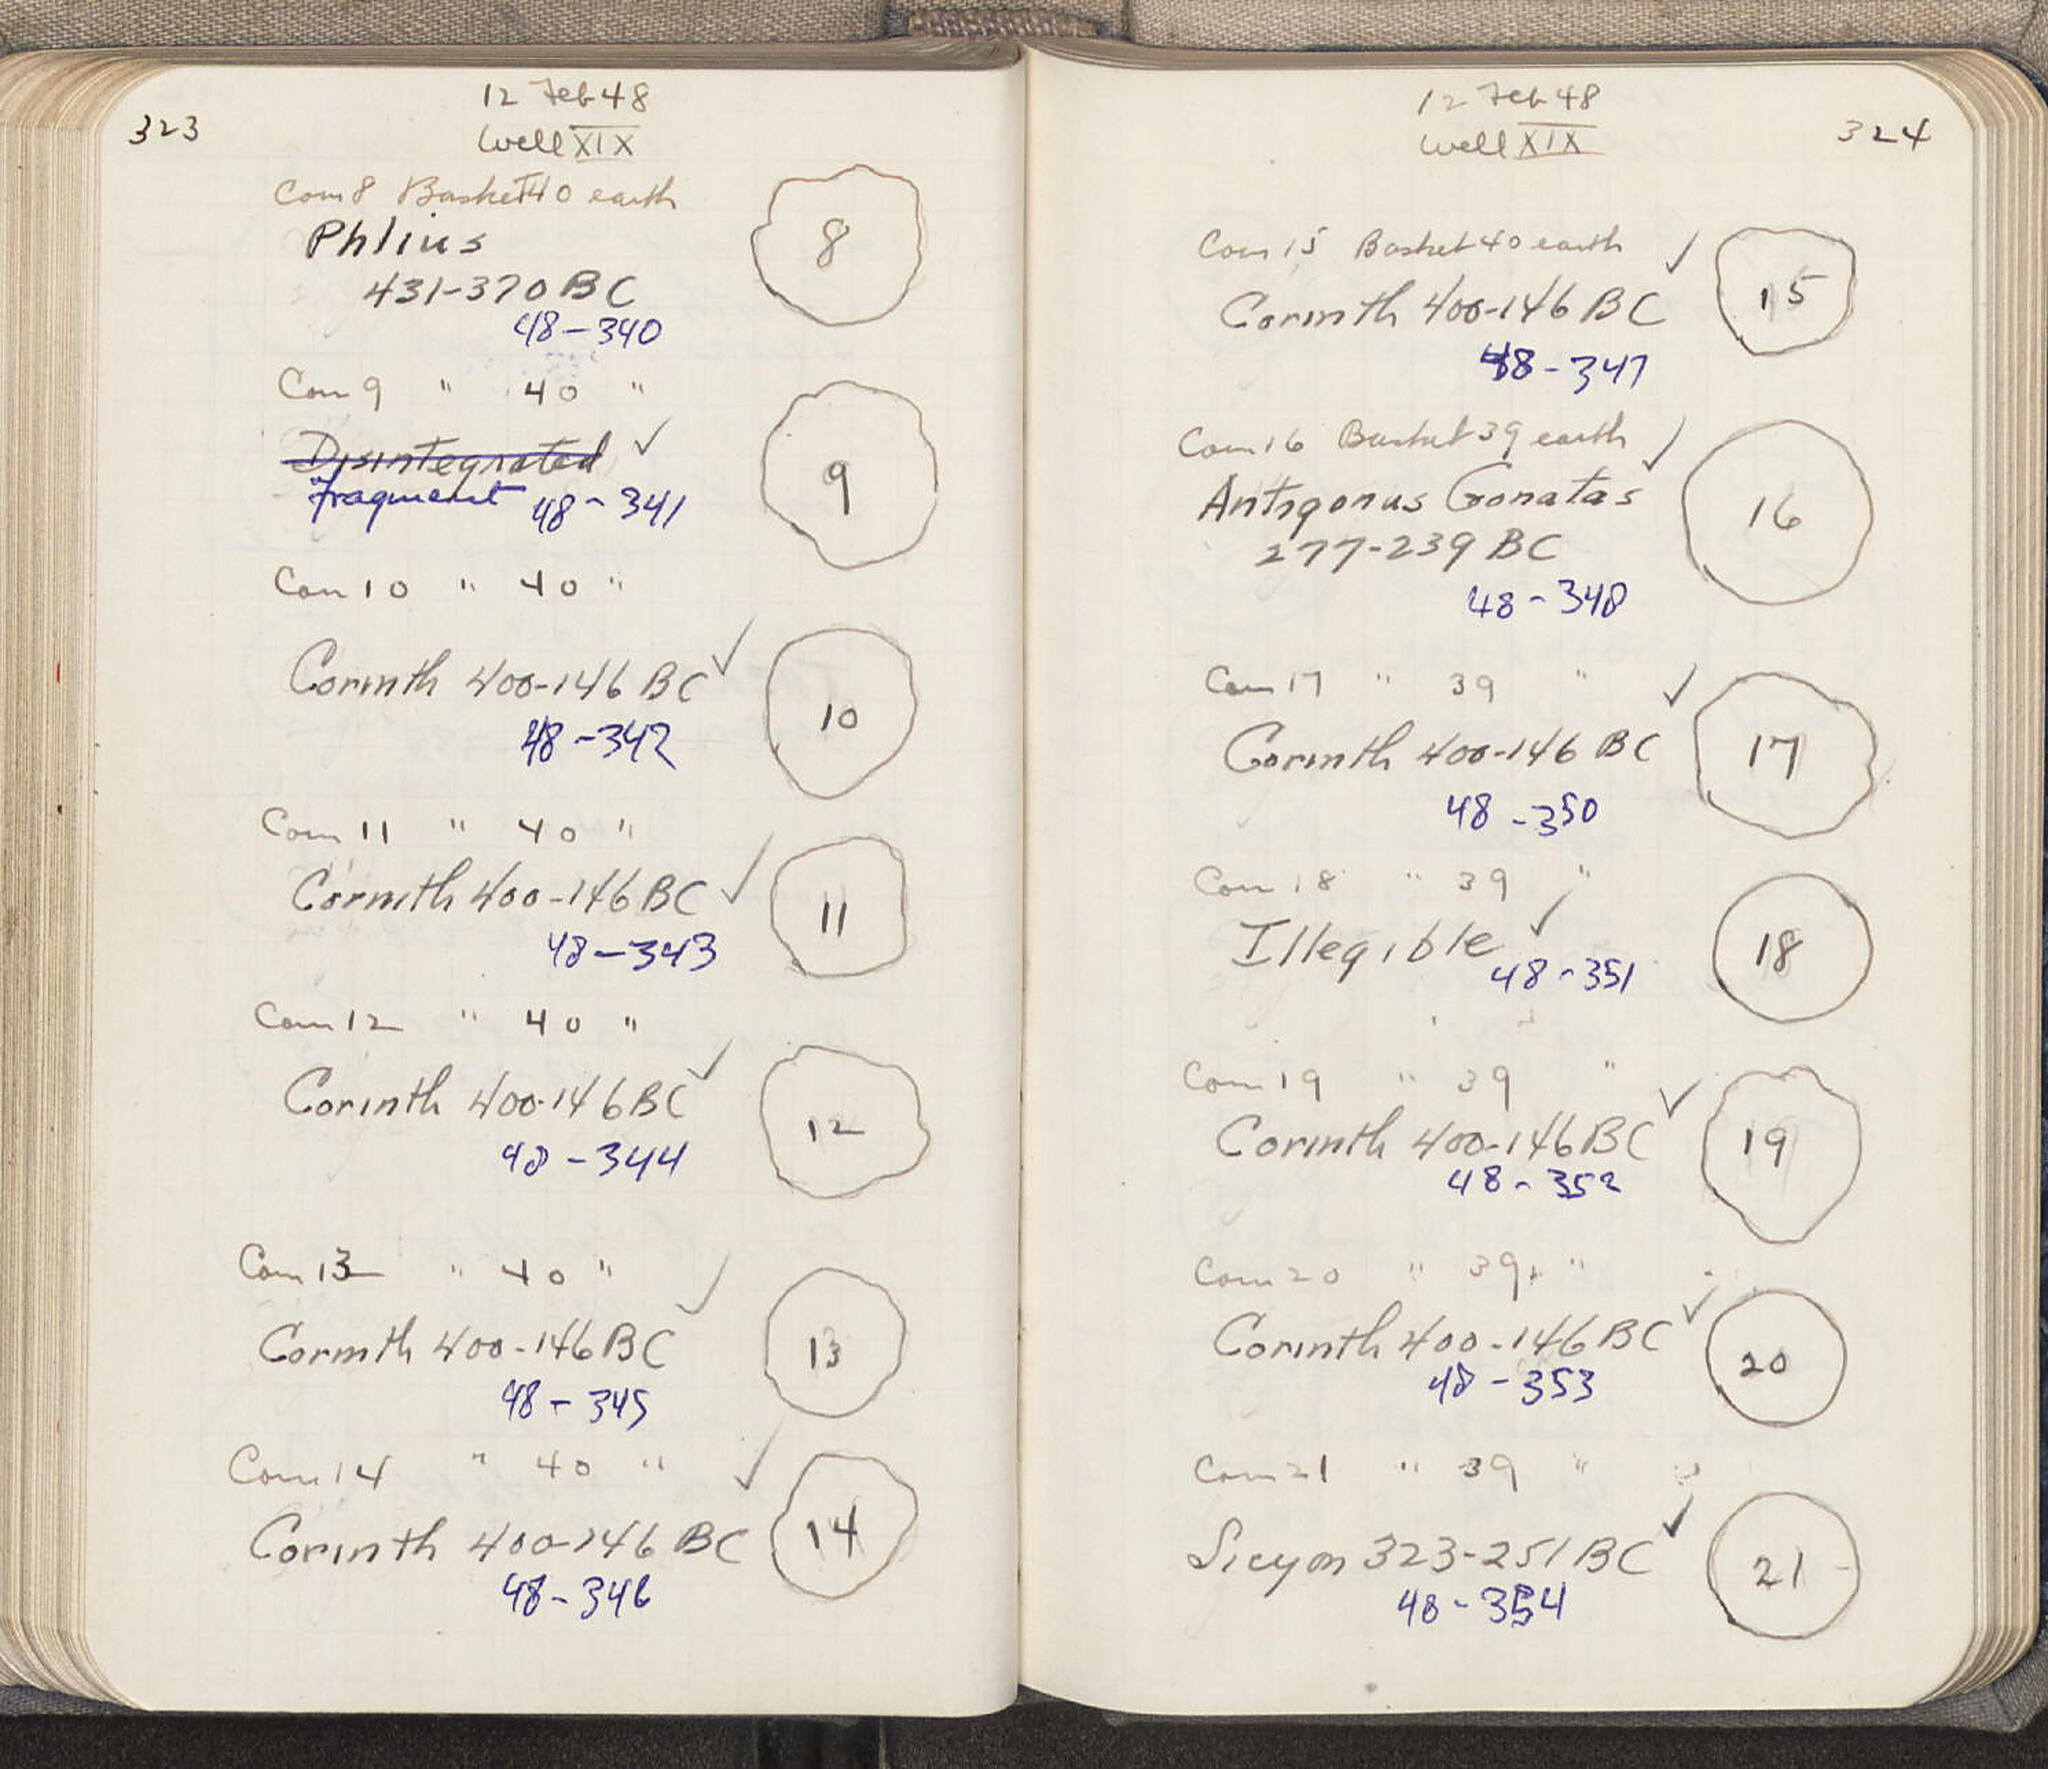 323
12 Feb 48
Well XIX
Coin 8 Basket 40 earth
Phlius
431-370 BC
48-340
8
Coin 9 " 40 "
Disintegrated ✓
fragment 48-341
9
Coin 10 " 40 "
Corinth 400-146 BC ✓
48-342
10
Coin 11 " 40 "
Corinth 400-146 BC ✓
48-343
11
Coin 12 " 40 "
Corinth 400-146 BC ✓
48-344
12
Coin 13 " 40 "
Corinth 400-146 BC ✓
48-345
13
Coin 14 " 40 "
Corinth 400-146 BC ✓
48-346
14
12 Feb 48
Well XIX
324
Coin 15 Basket 40 earth ✓
Corinth 400-146 BC
48-347
15
Coin 16 Basket 39 earth ✓
Antigonus Gonatas
277-239 BC
48-348
16
Coin 17 " 39 " ✓
Corinth 400-146 BC
48-350
17
Coin 18 " 39 "
Illegible ✓
48-351
18
Coin 19 " 39 "
Corinth 400-146 BC ✓
48-352
19
Coin 20 " 39 "
Corinth 400-146 BC ✓
48-353
20
Coin 21 " 39 "
Sicyon 323-251 BC ✓
48-354
21